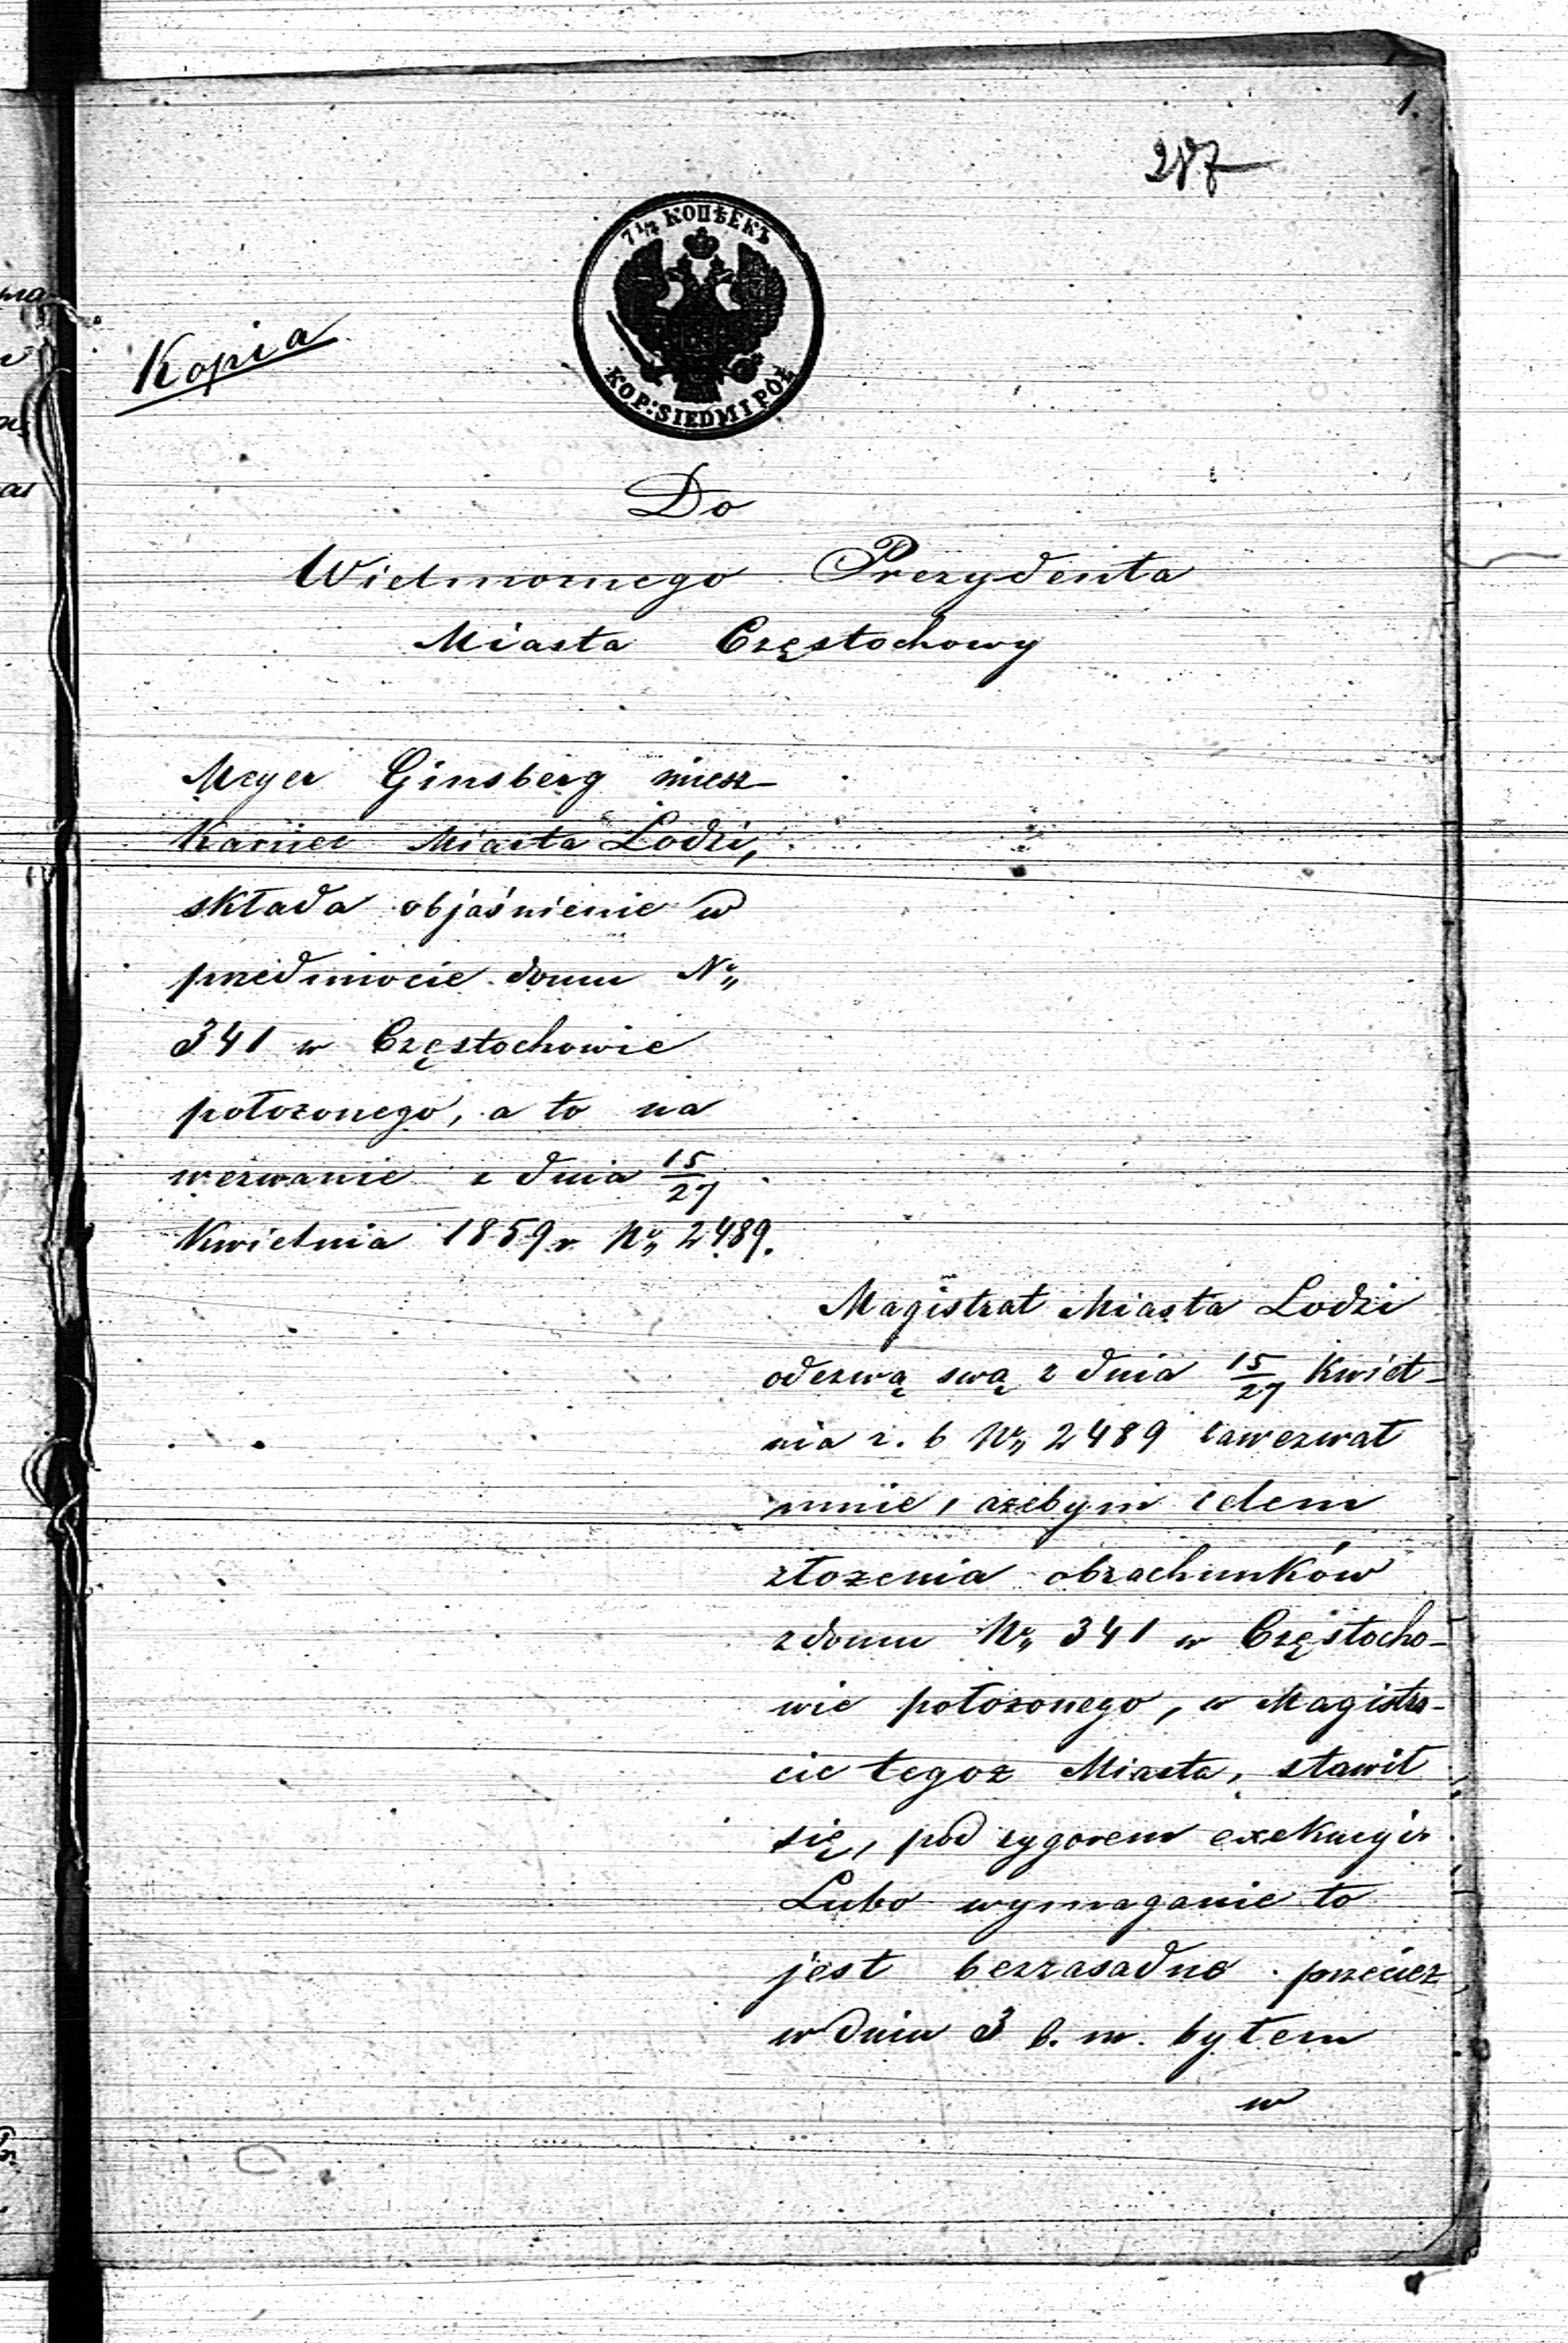 1.
287
7 1/2 КОПѢЕКЪ
KOP: SIEDM I PÓŁ
Kopia
Do
Wielmoznego Prezydenta
Miasta Częstochowy
Meyer Ginsberg miesz-
kaniec Miasta Lodzi,
składa objaśnienie w
przedmiocie domu No
341 w Częstochowie
położonego, a to na
wezwanie z dnia 15/27
Kwietnia 1859 r No 2489.
Magistrat Miasta Lodzi
odezwą swą z dnia 15/27 Kwiet-
nia r. b No 2489 zawezwał
mnie, ażebym celem
złożenia obrachunków
z domu No 341 w Częstocho-
wie położonego, w Magistra-
cie tegoż Miasta, stawił
się, pod rygorem exekucyi.
Lubo wymaganie to
jest bezzasadne przecież
w dniu 3 b. m. byłem
w